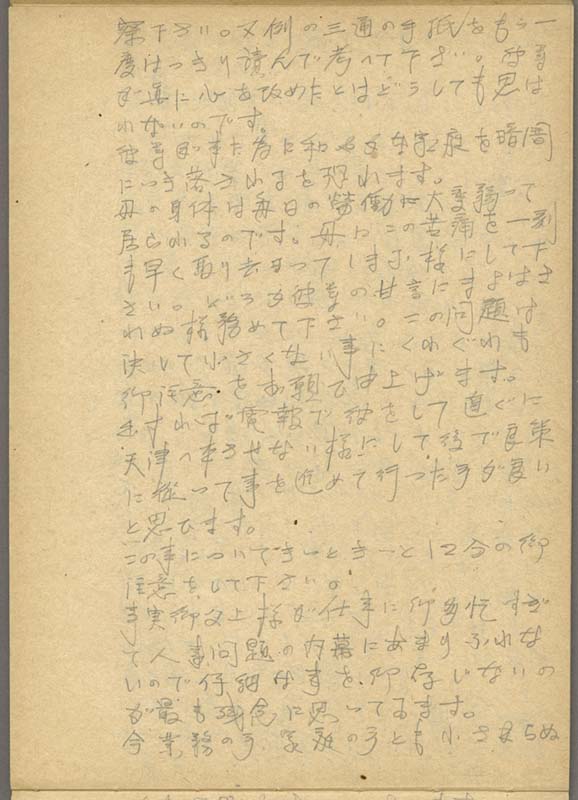 察下さい。又例の三通の手紙をもう一
度はっきり読んで考へて下さい。彼等
が真に心を改めたとはどうしても思は
れないのです。
彼等が来た為に和やかな家庭を暗闇
につき落されるを恐れます。
毋の身体は毎日の労働に大変弱って
居られるのです。毋にこの苦痛を一刻
も早く取り去って します様にして下
さい。どうも彼等の甘言にまよはさ
れぬ様務めて下さい。この問題は
決して小さくない事にくれぐれも
御注意をお願ひ申上げます。
出来れば電報で彼をして直ぐに
天津へ来させない様にして後で良策
に従って事を進めて行った方が良い
と思ひます。
この事についてきっときっと12分の御
注意をして下さい。
事実御父上様が仕事に御多忙すぎ
て人事問題の内幕にあまりふれな
いので仔細な事を御存じないの
が最も残念に思って居ます。
今業務の方 家庭の方とも小さからぬ